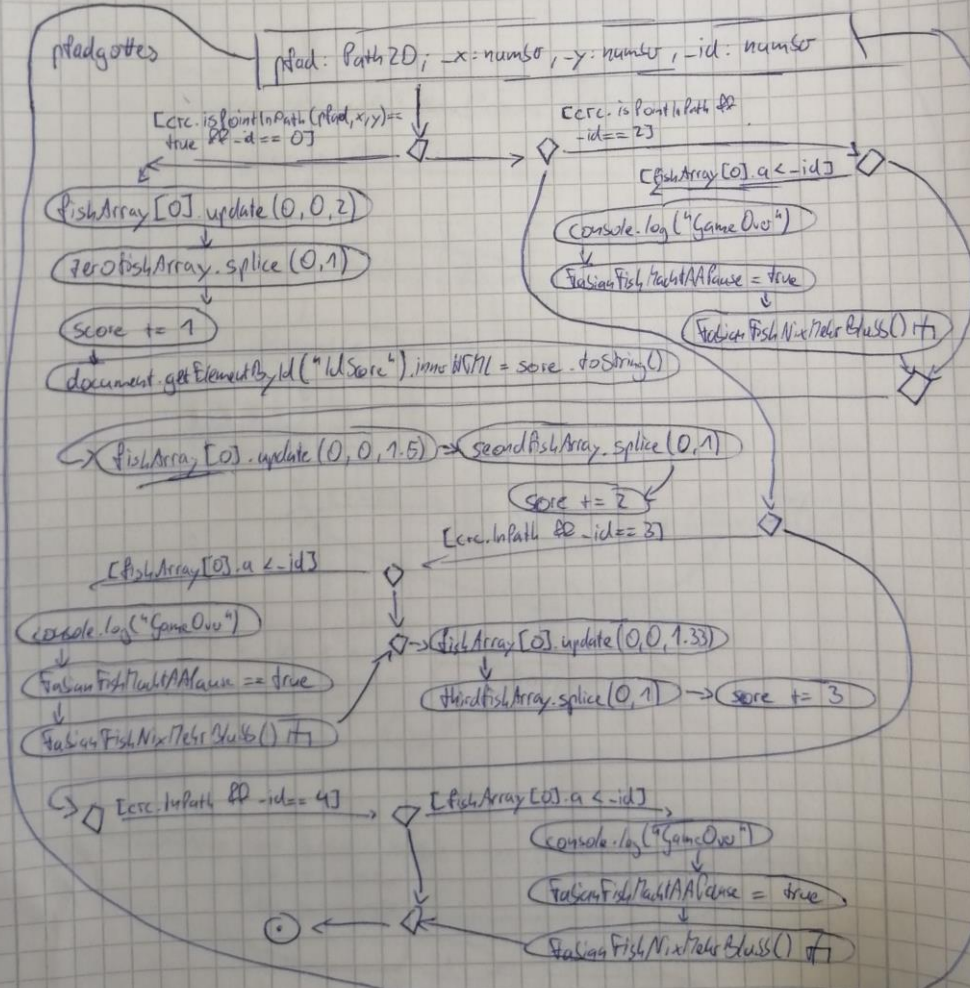 pfadgottes
pfad: Path2D; _x: number, _y: number, _id: number
[crc.isPointInPath(pfad,x,y)==
true && _id == 0]
[crc.isPointInPath &&
_id==2]
[fishArray[0].a < _id]
fishArray[0].update(0,0,2)
zerofishArray.splice(0,1)
score += 1
document.getElementById("IdScore").innerHTML = sore.toString()
console.log("GameOver")
FabianFishMachtAAPause = true
FabianFishNixMehrBlubb()
fishArray[0].update(0,0,1.5)
secondfishArray.splice(0,1)
sore += 2
[crc.InPath && _id==3]
[fishArray[0].a < _id]
console.log("GameOver")
FabianFishMachtAAPause == true
FabianFishNixMehrBlubb()
fishArray[0].update(0,0,1.33)
thirdfishArray.splice(0,1)
sore += 3
[crc.InPath && _id==4]
[fishArray[0].a < _id]
console.log("GameOver")
FabianFishMachtAAPause = true
FabianFishNixMehrBlubb()